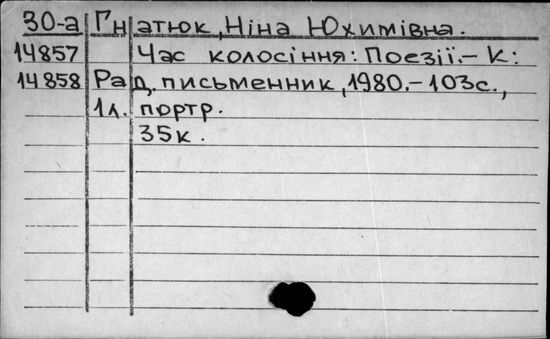 30-а Гнатюк, Ніна Юхимівна.
14857 Час колосіння: Поезії.– К:
14858 Рад. письменник, 1980.– 103с.,
1л. портр.
35к.